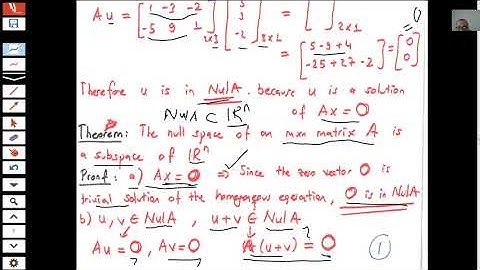 Au = [1 -3 -2
-5 9 1] 2x3 [5
3
-2] 3x1 = [ ] 2x1
= [5-9+4
-25+27-2] = [0
0]
Therefore u is in NulA. because u is a solution
of Ax=0
NulA ⊂ ℝⁿ
Theorem: The null space of an mxn matrix A is
a subspace of ℝⁿ
Proof: a) Ax=0 ⇒ Since the zero vector 0 is
trivial solution of the homogenous equation, 0 is in NulA
b) u, v ∈ NulA, u+v ∈ NulA
?
Au=0, Av=0 A(u+v) = 0 ①